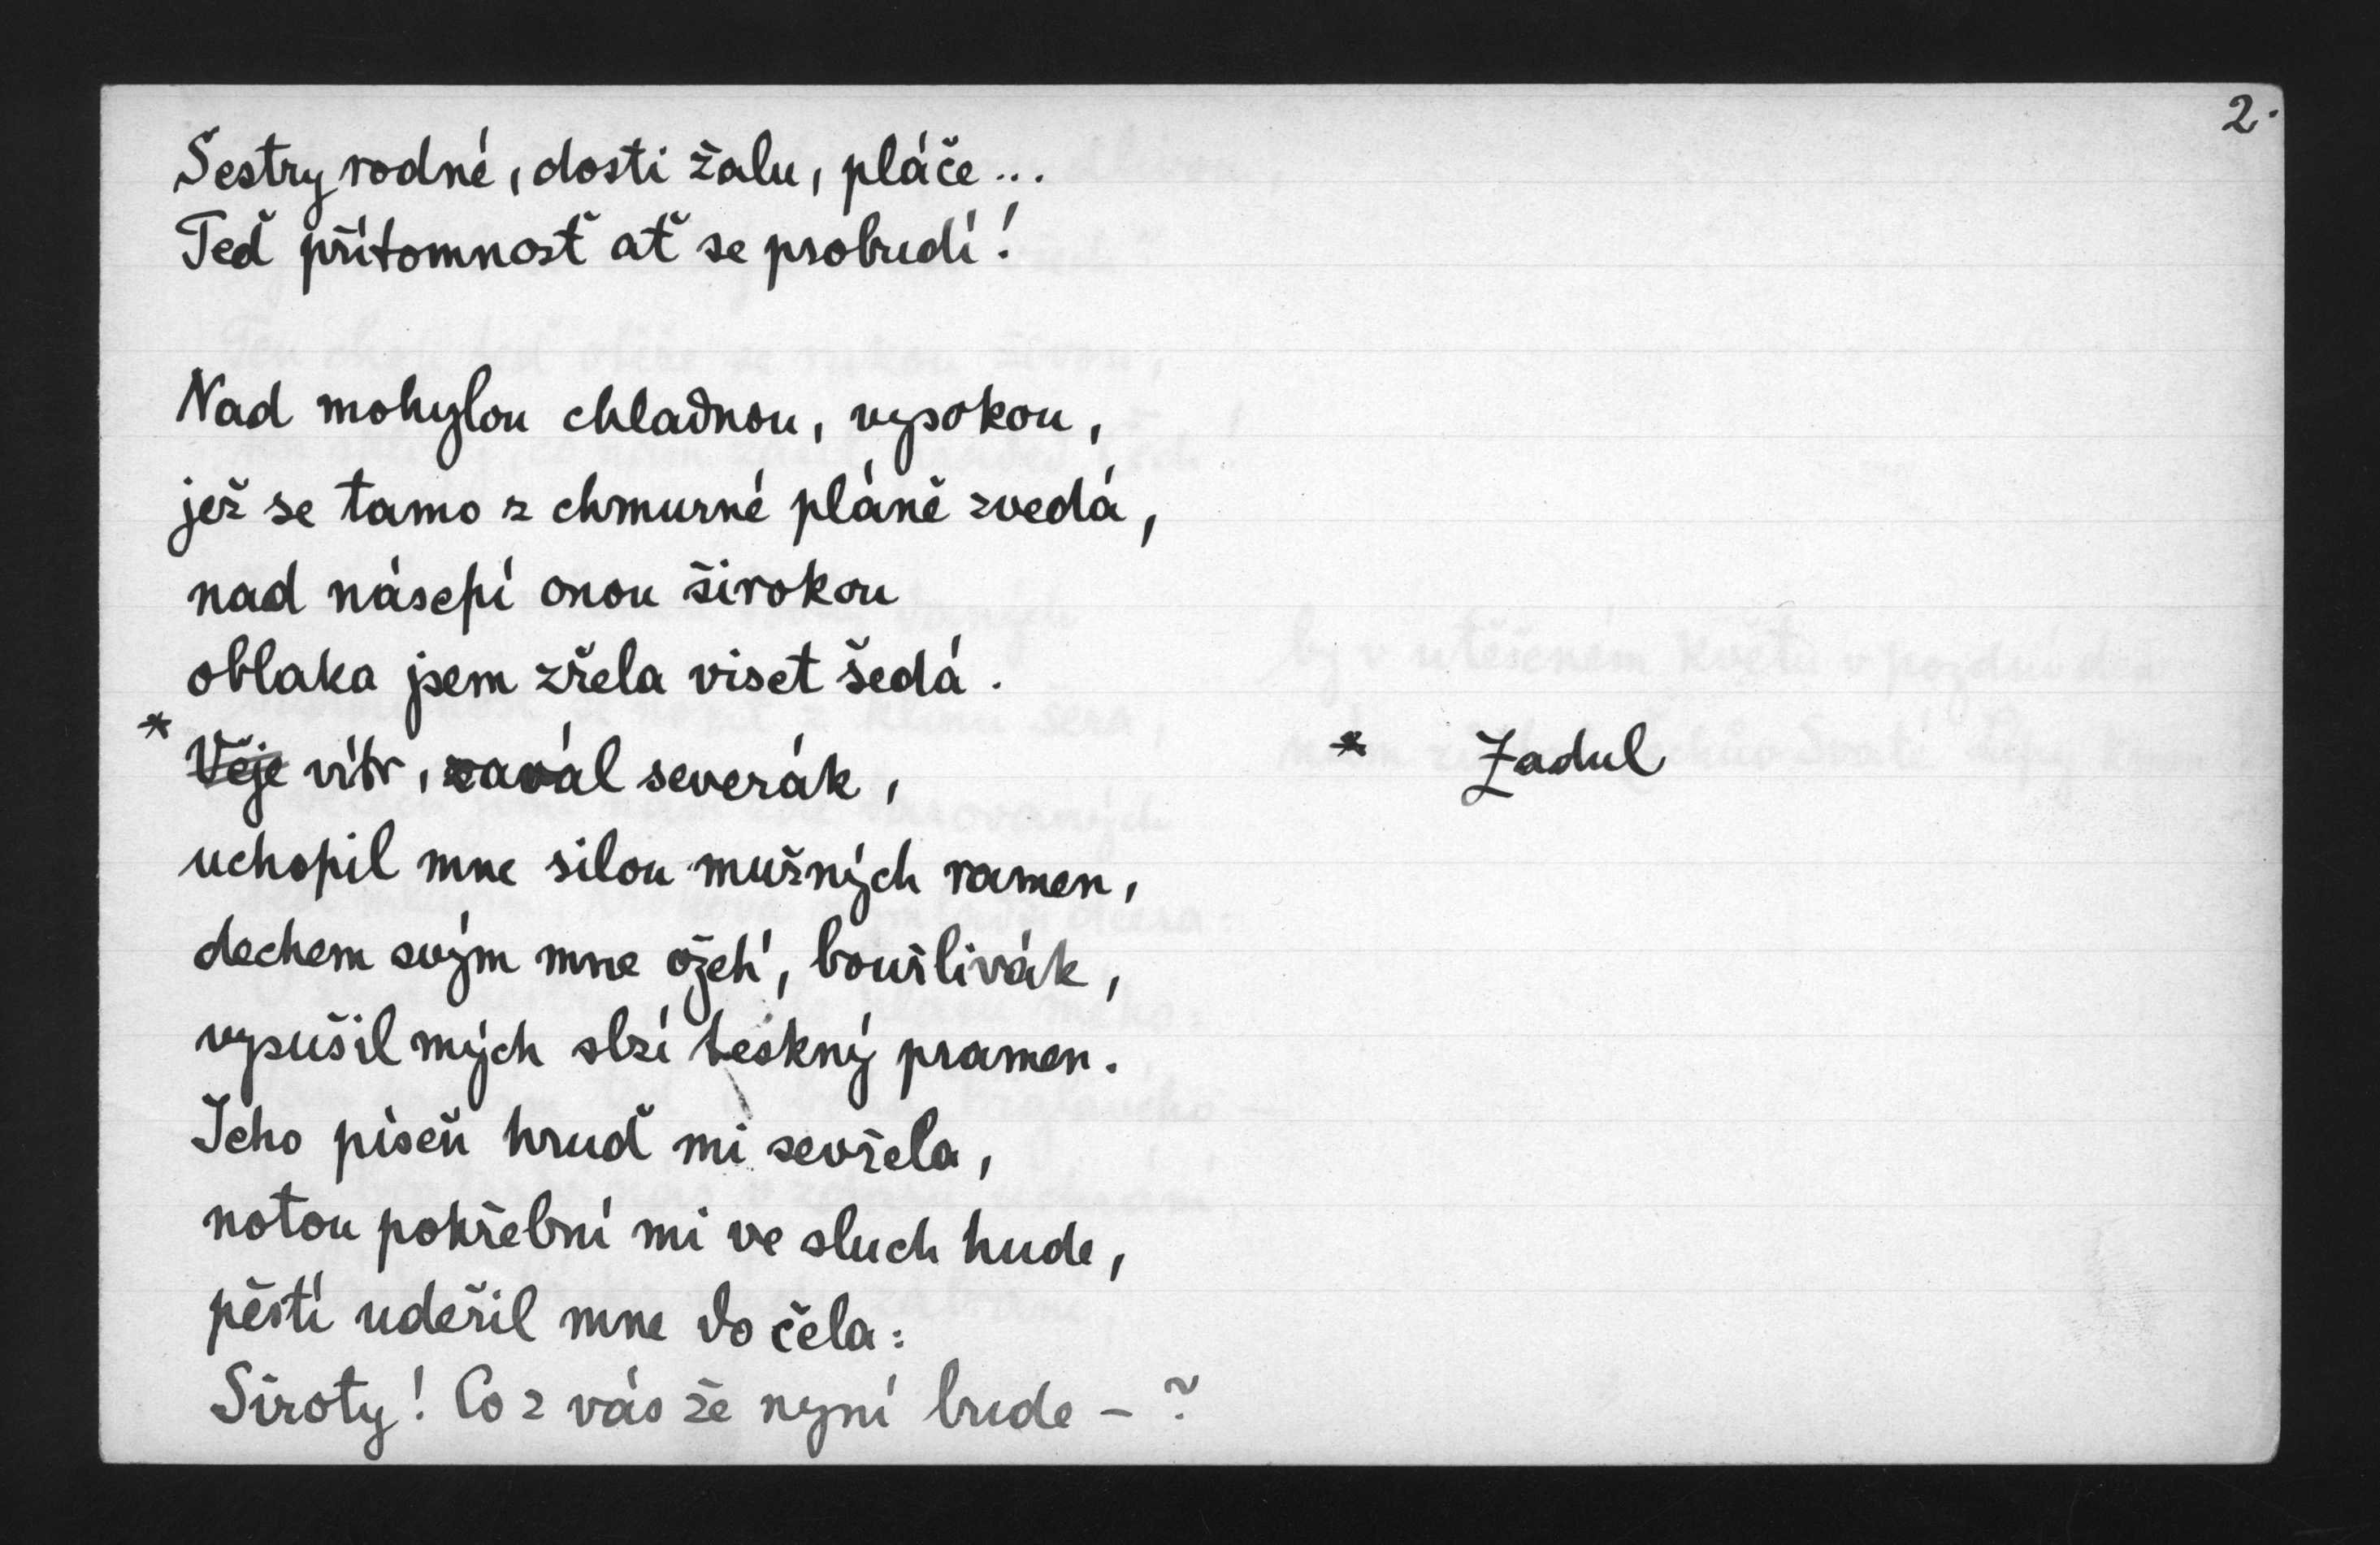 2.
Sestry rodné, dosti žalu, pláče...
Teď přítomnosť ať se probudí!
Nad mohylou chladnou, vysokou,
jež se tamo z chmurné pláně zvedá,
nad násepí onou širokou
oblaka jsem zřela viset šedá.
* Věje vítr, zavál severák,
* Zadul
uchopil mne silou mužných ramen,
dechem svým mne ožeh', bouřlivák,
vysušil mých slzí teskný pramen.
Jeho píseň hruď mi sevřela,
notou pohřební mi ve sluch hude,
pěstí udeřil mne do čela:
Siroty! Co z vás že nyní bude - ?